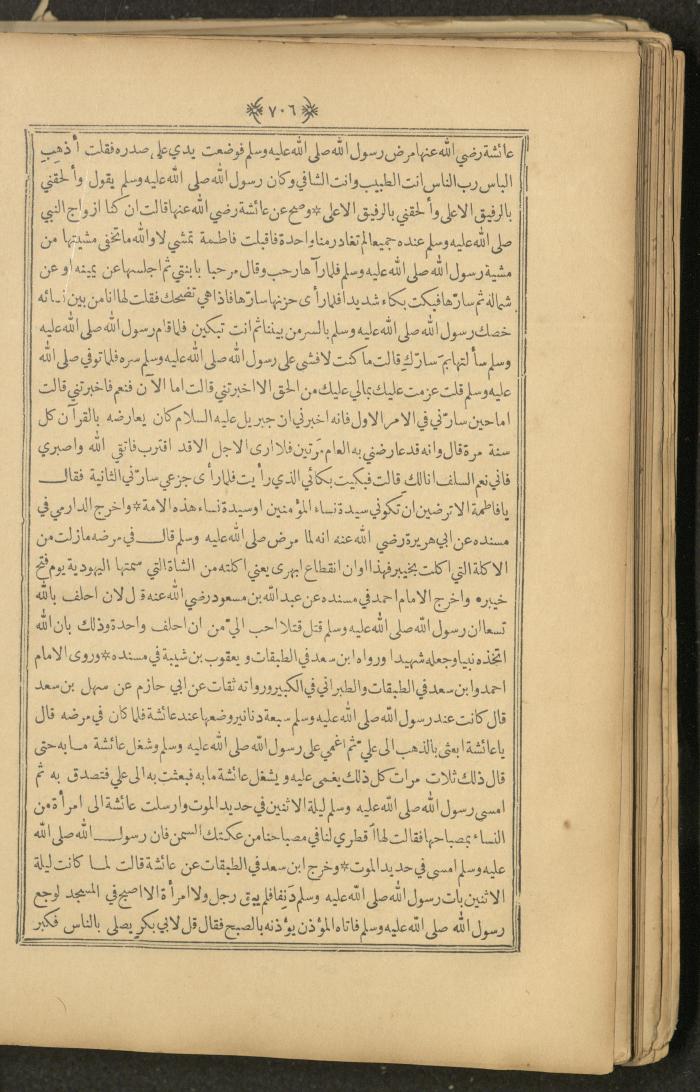 ٧٠٦
عائشة رضي الله عنها مرض رسول الله صلى الله عليه وسلم فوضعت يدي على صدره فقلت أذهب
الباس رب الناس انت الطبيب وانت الشافي وكان رسول الله صلى الله عليه وسلم يقول وألحقني
بالرفيق الاعلى وألحقني بالرفيق الاعلى * وصح عن عائشة رضي الله عنها قالت ان كنا ازواج النبي
صلى الله عليه وسلم عنده جميعا لم تغادر منا واحدة فاقبلت فاطمة تمشي لا والله ما تخفى مشيتها من
مشية رسول الله صلى الله عليه وسلم فلما رآها رحب وقال مرحبا بابنتي ثم اجلسها عن يمينه او عن
شماله ثم سارّها فبكت بكاء شديدا فلما رأى حزنها سارّها فاذا هي تضحك فقلت لها انا من بين نسائه
خصك رسول الله صلى الله عليه وسلم بالسر من بيننا ثم انت تبكين فلما قام رسول الله صلى الله عليه
وسلم سألتها بمَ سارّكِ قالت ما كنت لافشي على رسول الله صلى الله عليه وسلم سره فلما توفي صلى الله
عليه وسلم قلت عزمت عليك بمالي عليك من الحق الا اخبرتني قالت اما الآن فنعم فاخبرتني قالت
اما حين سارّني في الامر الاول فانه اخبرني ان جبريل عليه السلام كان يعارضه بالقرآن كل
سنة مرة قال وانه قد عارضني به العام مرّتين فلا ارى الاجل الا قد اقترب فاتقي الله واصبري
فاني نعم السلف انا لك قالت فبكيت بكائي الذي رأيت فلما رأى جزعي سارّني الثانية فقال
يا فاطمة الا ترضين ان تكوني سيدة نساء المؤمنين او سيدة نساء هذه الامة * واخرج الدارمي في
مسنده عن ابي هريرة رضي الله عنه انه لما مرض صلى الله عليه وسلم قال في مرضه ما زلت من
الاكلة التي اكلت بخيبر فهذا اوان انقطاع ابهري يعني اكلته من الشاة التي سمتها اليهودية يوم فتح
خيبر * واخرج الامام احمد في مسنده عن عبد الله بن مسعود رضي الله عنه قال لان احلف بالله
تسعا ان رسول الله صلى الله عليه وسلم قتل قتلا احب اليّ من ان احلف واحدة وذلك بان الله
اتخذه نبيا وجعله شهيدا ورواه ابن سعد في الطبقات ويعقوب بن شيبة في مسنده * وروى الامام
احمد وابن سعد في الطبقات والطبراني في الكبير ورواته ثقات عن ابي حازم عن سهل بن سعد
قال كانت عند رسول الله صلى الله عليه وسلم سبعة دنانير وضعها عند عائشة فلما كان في مرضه قال
يا عائشة ابعثي بالذهب الى علي ثم اغمي على رسول الله صلى الله عليه وسلم وشغل عائشة ما به حتى
قال ذلك ثلاث مرات كل ذلك يغمى عليه ويشغل عائشة ما به فبعثت به الى علي فتصدق به ثم
امسى رسول الله صلى الله عليه وسلم ليلة الاثنين في حديد الموت وارسلت عائشة الى امرأة من
النساء بمصباحها فقالت لها اقطري لنا في مصباحنا من عكتك السمن فان رسول الله صلى الله
عليه وسلم امسى في حديد الموت * وخرج ابن سعد في الطبقات عن عائشة قالت لما كانت ليلة
الاثنين بات رسول الله صلى الله عليه وسلم دَنِفا فلم يبق رجل ولا امرأة الا اصبح في المسجد لوجع
رسول الله صلى الله عليه وسلم فاتاه المؤذن يؤذنه بالصبح فقال قل لابي بكر يصلي بالناس فكبر